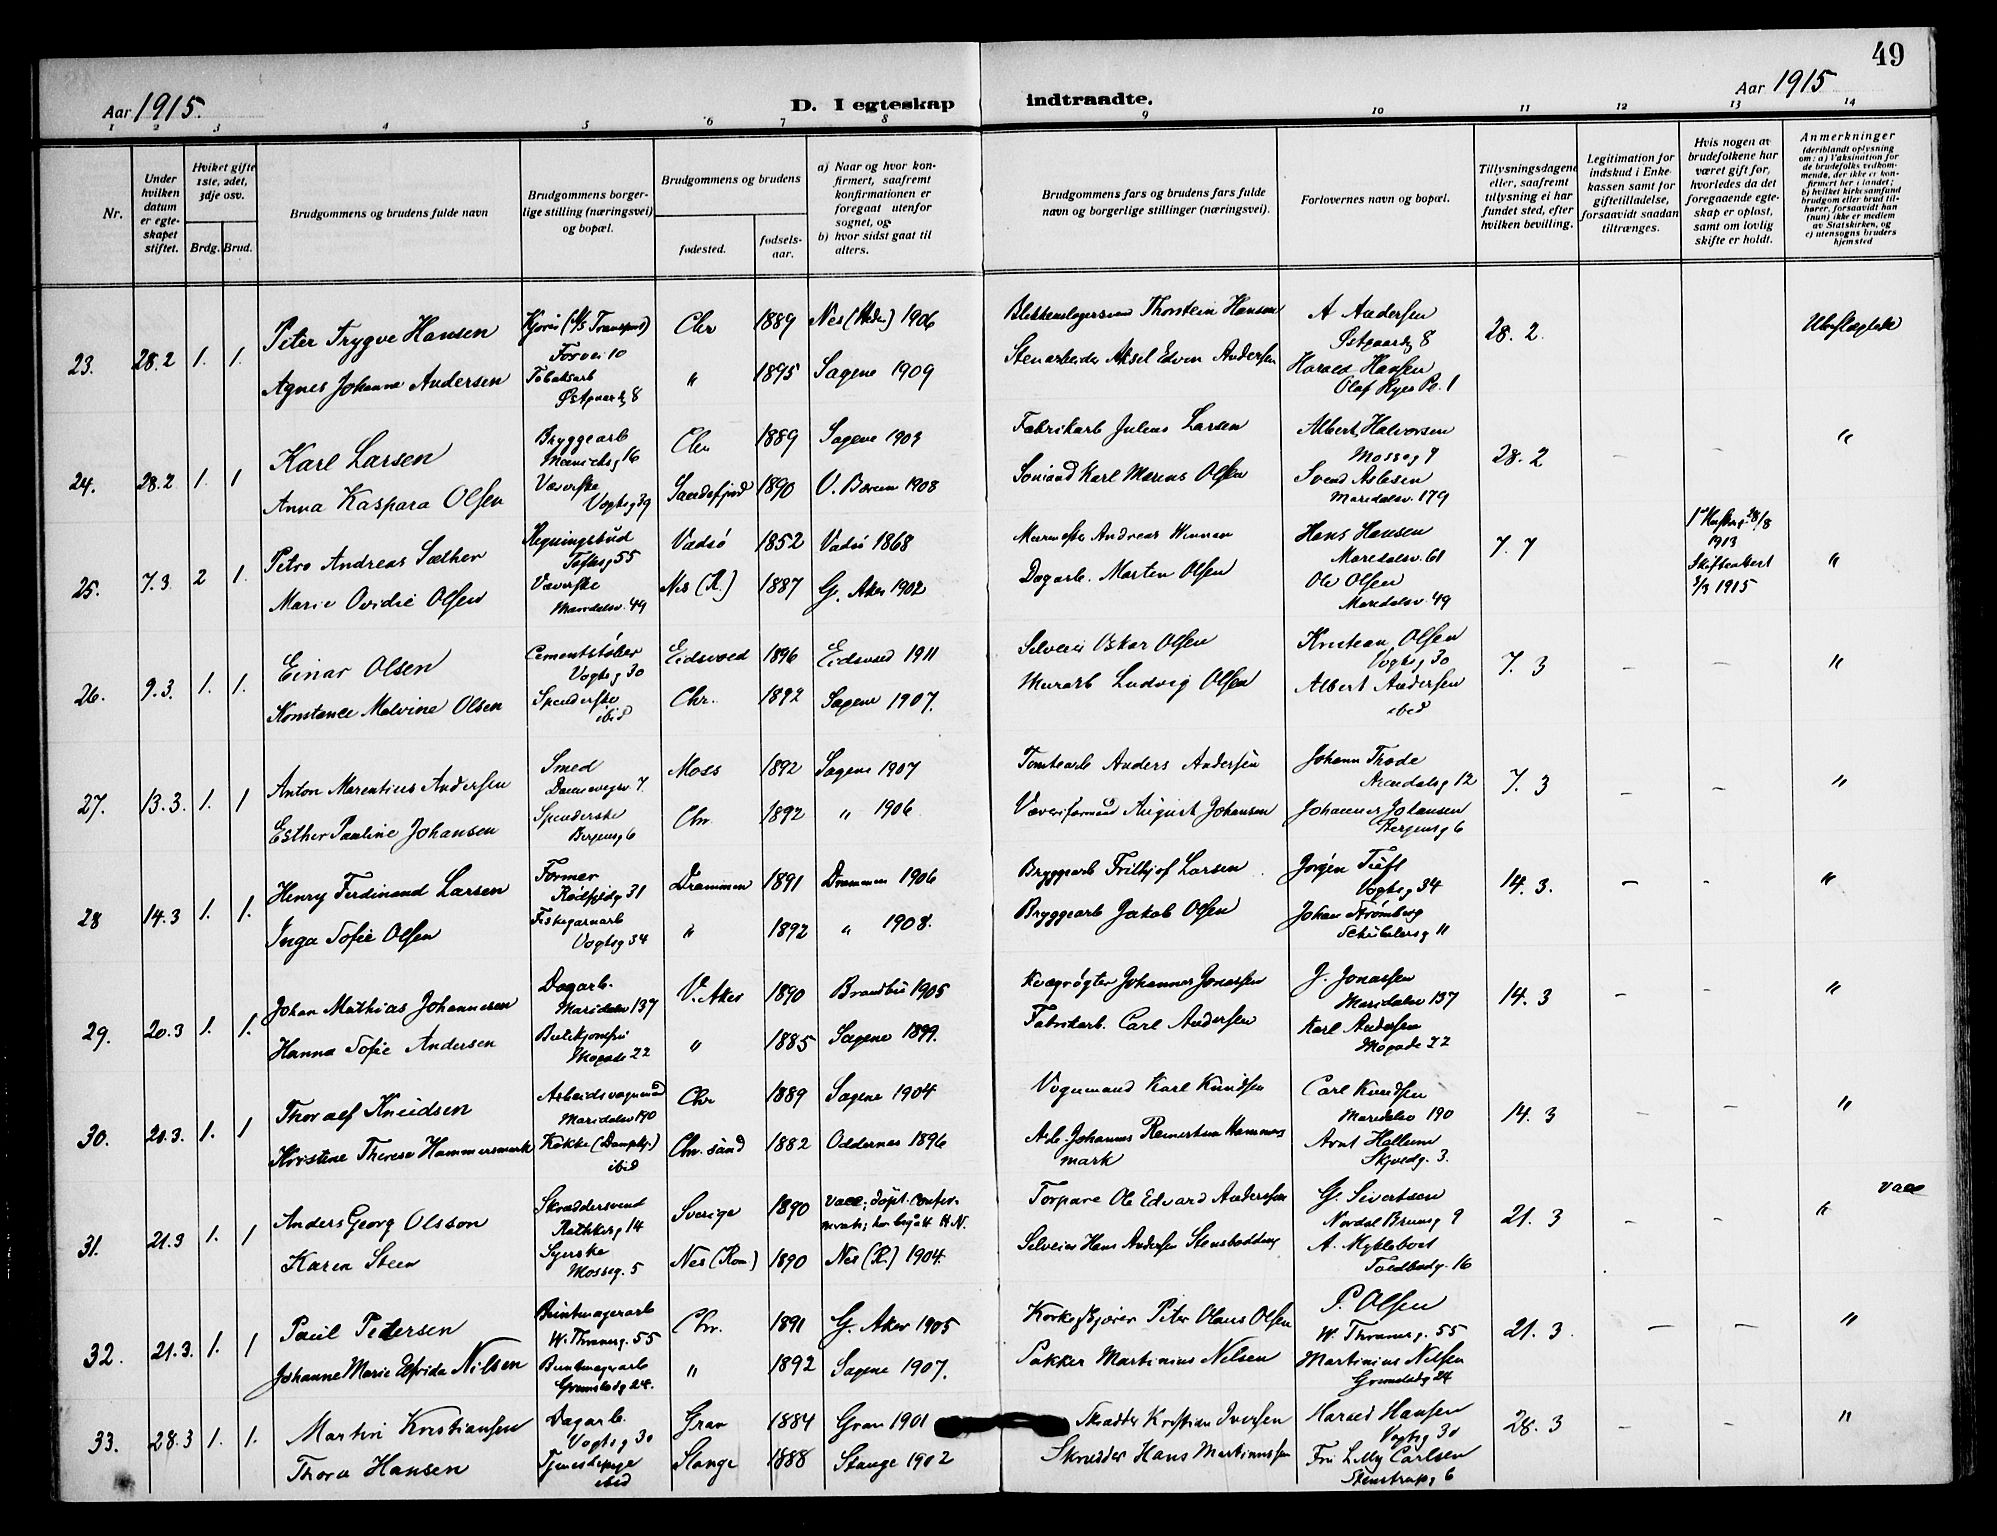 49
Aar 1915.
D. I egteskap indtraadte.
Aar 1915
1 2 3 4 5 6 7 8 9 10 11 12 13 14
Nr.
Under hvilken datum er egteskapet stiftet.
Hvilket gifte 1ste, 2det, 3dje osv.
Brdg. Brud.
Brudgommens og brudens fulde navn
Brudgommens borgerlige stilling (næringsvei) og bopæl.
Brudgommens og brudens
fødested.
fødselsaar.
a) Naar og hvor konfirmert, saafremt konfirmationen er foregaat utenfor sognet, og
b) hvor sidst gaat til alters.
Brudgommens fars og brudens fars fulde navn og borgerlige stillinger (næringsvei).
Forlovernes navn og bopæl.
Tillysningsdagene eller, saafremt tillysning ei har fundet sted, efter hvilken bevilling.
Legitimation for indskud i Enkekassen samt for giftetilladelse, forsaavidt saadan tiltrænges.
Hvis nogen av brudefolkene har været gift før, hvorledes da det foregaaende egteskap er opløst, samt om lovlig skifte er holdt.
Anmerkninger
(deriblandt oplysning om: a) Vaksination for de brudefolks vedkommende, der ikke er konfirmert her i landet; b) hvilket kirkesamfund brudgom eller brud tilhører, forsaavidt han (hun) ikke er medlem av Statskirken, og c) utensogns bruders hjemsted
23. 28.2 1. 1. Peter Trygve Hansen Chr 1889 Nes (Hedm) 1906 Thorstein Hansen A Andersen Østgaardg 8 28. 2.
Agnes Johanne Andersen Tobaksarb Østgaardg 8 " 1895 Sagene 1909 Stenarbeider Aksel Edvin Andersen Harald Hansen Olaf Ryes Pl. 1
24. 28.2 1. 1 Karl Larsen Bryggearb 16 Chr 1889 Sagene 1903 Fabrikarb Julius Larsen Albert Halvorsen Mosseg 9 28. 2 - - "
Anna Kaspara Olsen Væverske Vogtsg 39 Sandefjord 1890 V. Bærum 1908 Sømand Karl Marius Olsen Svend Aslesen Maridalsv. 179
25. 7.3 2 1. Petro Andreas Sæther Regningsbud Toftesg 55 Vadsø 1852 Vadsø 1868 Andreas Hans Hansen Maridalsv. 61 7. 7 1913 1915 "
Marie Ovidie Olsen Væverske Maridalsv. 49 Nes (R.) 1887 G. Aker 1902 Dagarb. Morten Olsen Ole Olsen Maridalsv 49
26. 9.3. 1. 1. Einar Olsen Cementstøber Vogtsg 30 Eidsvold 1896 Eidsvold 1911 Selveier Oskar Olsen Kristian Olsen Vogtsg 30 7. 3 - - "
Konstance Malvine Olsen Spinderske ibid Chr. 1892 Sagene 1907. Murarb Ludvig Olsen Albert Andersen ibid
27. 13.3. 1. 1 Anton Marentius Andersen Smed Moss 1892 Sagene 1907 Tomtearb Anders Andersen Johann Thode 12 7. 3 - - "
Esther Pauline Johansen Spinderske Bergensg 6 Chr. 1892 " 1906 Væveriformand August Johansen Johannes Johansen Bergensg 6
28 14.3 1. 1. Henry Ferdinand Larsen Former 31 Drammen 1891 Drammen 1906 Bryggearb Frithjof Larsen Jørgen Tuft Vogtsg 34 14. 3. - - "
Inga Sofie Olsen Fiskegarnarb Vogtsg 34 " 1892 " 1908. Bryggearb Jakob Olsen Johan Strømberg Schübelersg 11
29. 20.3 1. 1. Johan Mathias Johannesen Dagarb. Maridalsv 137 V. Aker 1890 Brandbu 1905 Kvægrøgter Johannes Jonassen J. Jonassen Maridalsv 137 14. 3 - - "
Hanna Sofie Andersen Butikjomfru Mogade 22 " 1885 Sagene 1899. Fabrikarb. Carl Andersen Karl Andersen Mogade 22
30. 20.3. 1. 1 Thoralf Knudsen Arbeidsvognmand Maridalsv 190 Chr 1889 Sagene 1904 Vognmand Karl Knudsen Carl Knudsen Maridalsv 190 14. 3 - - "
Kristine Therese Hammersmark Kokke (Dampkj.) ibid Chr. sand 1882 Oddernes 1896 Arb. Johannes Reinertsen Hammersmark Arnt Hallum 3.
31. 21.3 1. 1 Anders Georg Olsson Skræddersvend Rathkesg 14 Sverige 1890 vacc; døpt. Torpare Ole Edvard Andersen G. Sivertsen Nordal Brunsg 9 21. 3 - - " vacc
Karen Steen Syerske Mosseg. 5 Nes (Rom) 1890 Nes (R.) 1904. Selveier Hans Andersen A. Myklebost Toldbodg. 16
32. 21.3. 1. 1 Paul Pedersen Buntmagerarb W. Thranesg. 55 Chr. 1891 G. Aker 1905 Peter Olaus Olsen P. Olsen W. Thranesg. 55 21. 3. - - "
Johanne Marie Elfrida Nilsen Buntmagerarb Grimstadg 24. " 1892 Sagene 1907. Pakker Martinius Nilsen Martinius Nilsen Grimstadg 24
33. 28.3 1. 1. Martin Kristiansen Dagarb. Vogtsg 30 Gran 1884 Gran 1901 Kristian Iversen Harald Hansen Vogtsg 30 28. 3 - - "
Thora Hansen Tjenestepige ibid Stange 1888 Stange 1902 Skrædder Hans Martinussen Fru Lilly Carlsen Stenstrupsg 6